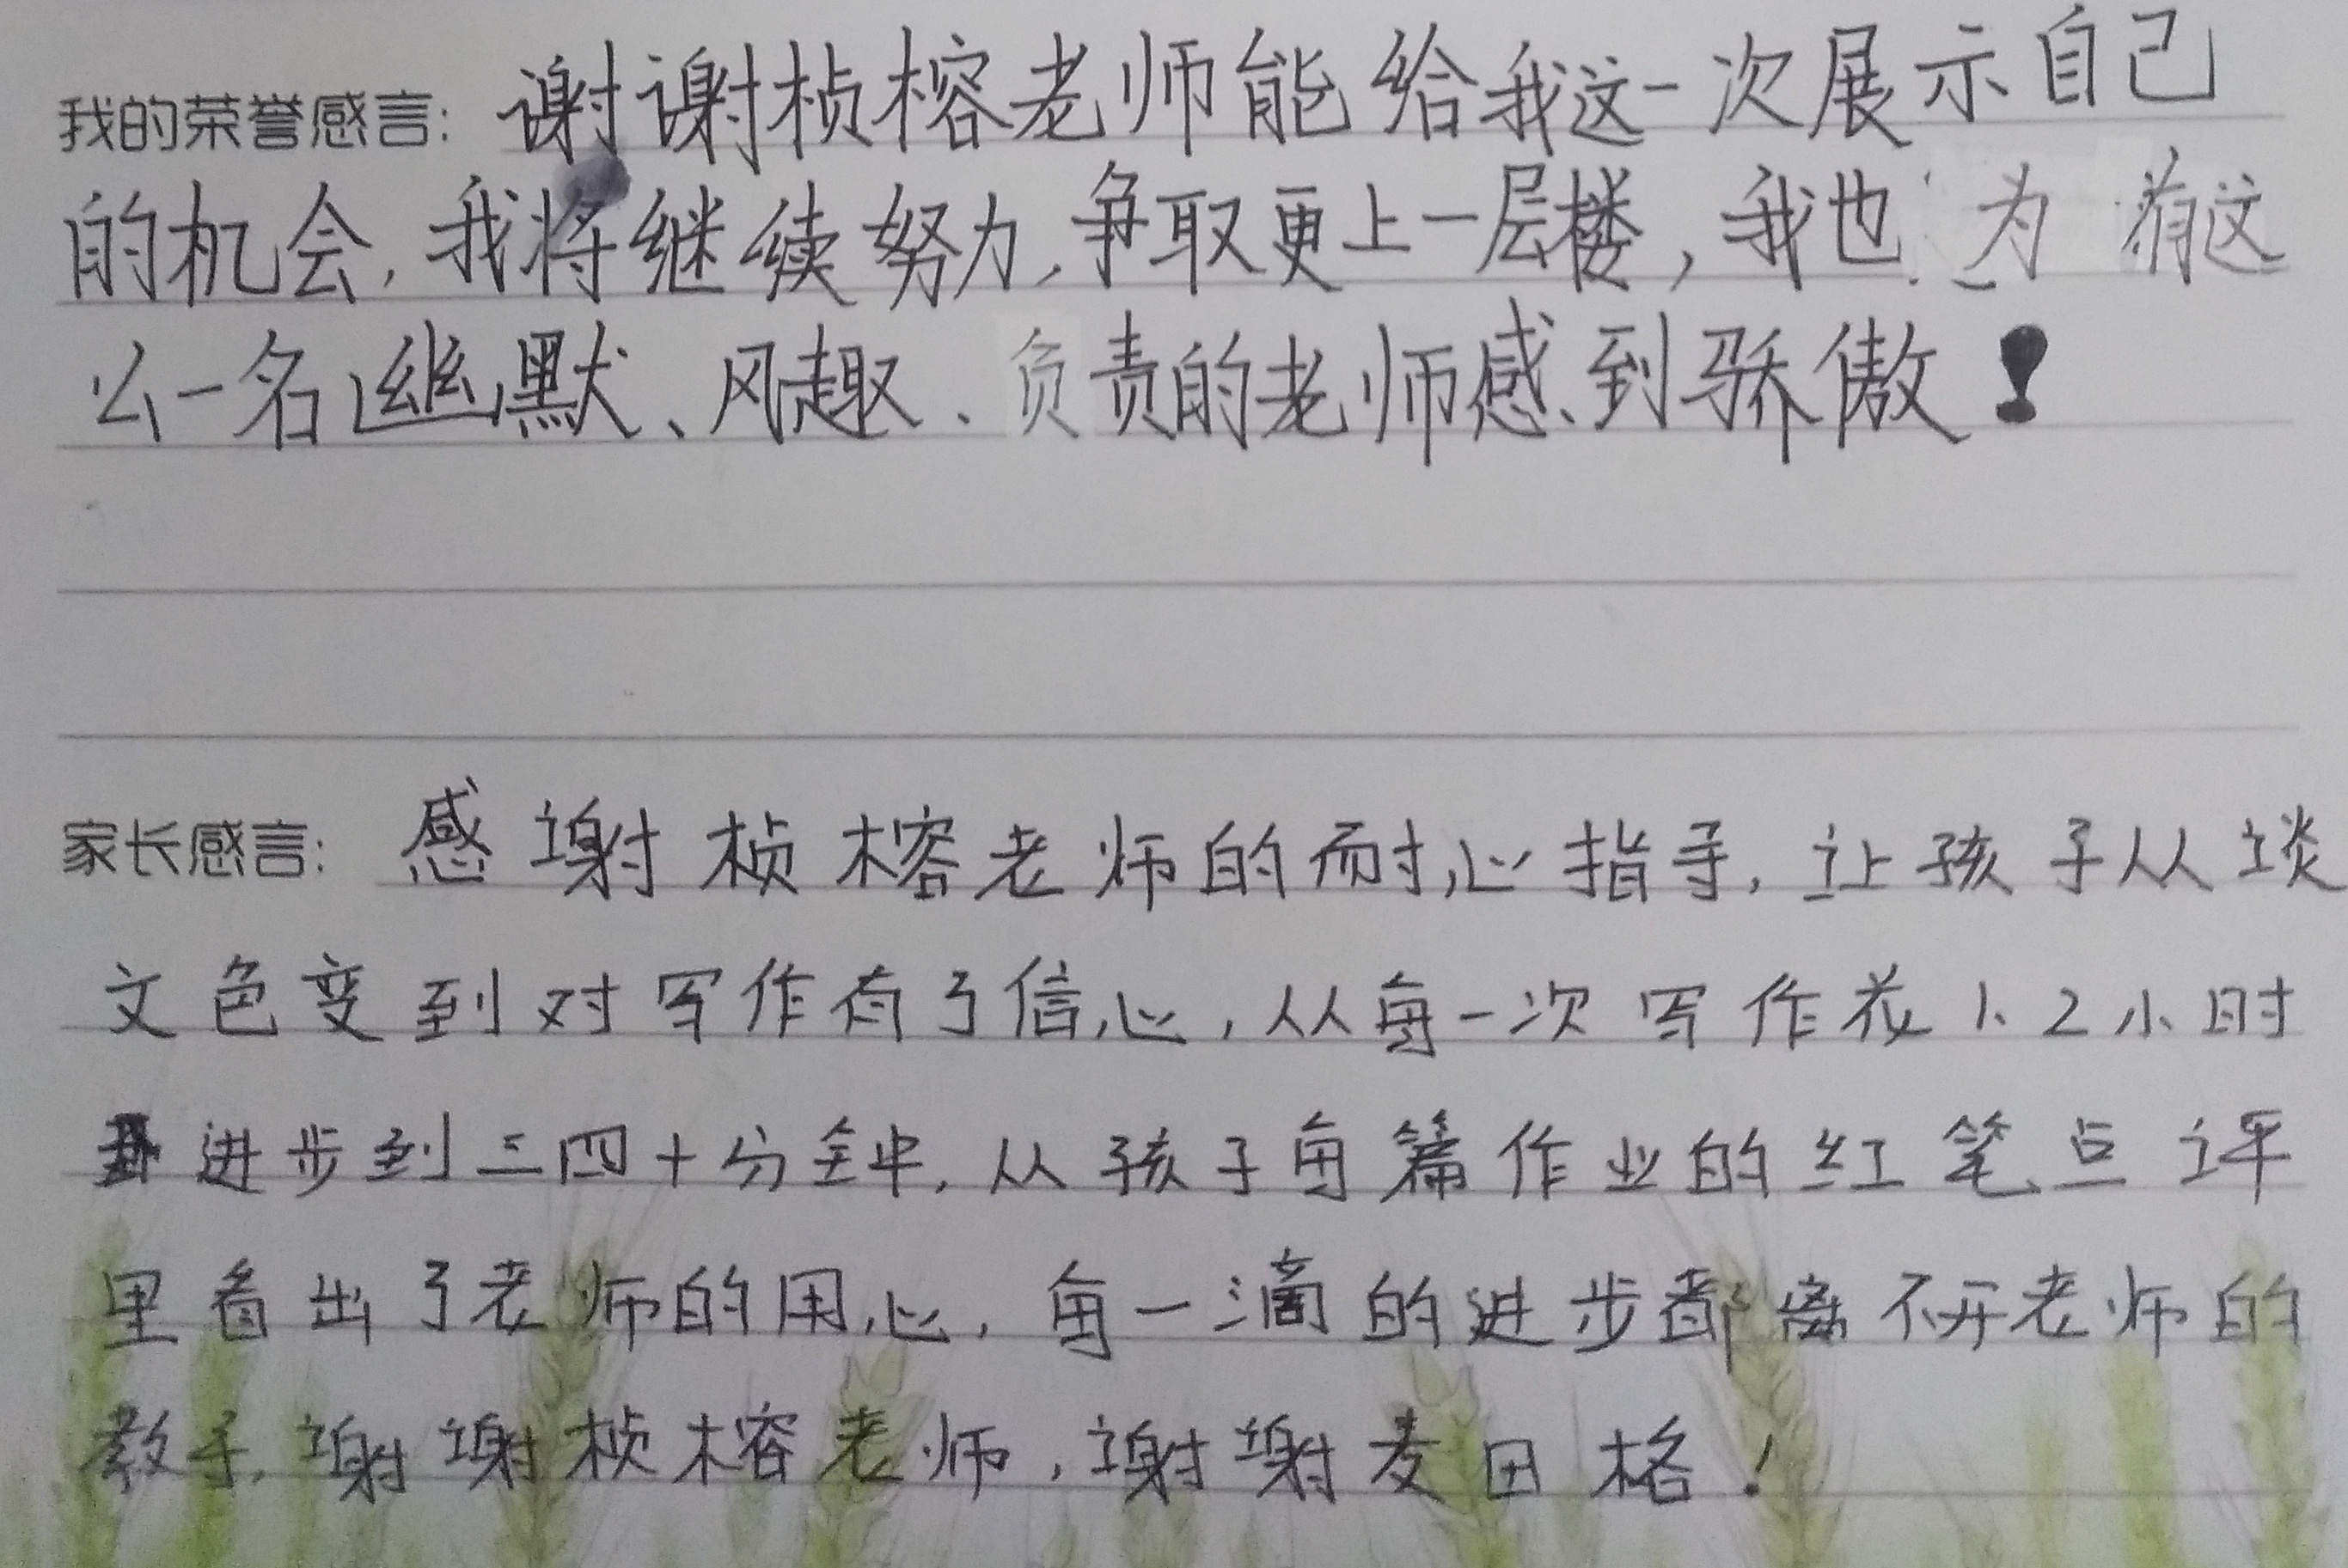 我的荣誉感言：谢谢桢榕老师能给我这一次展示自己
的机会，我将继续努力，争取更上一层楼，我也为有这
么一名幽默、风趣、负责的老师感到骄傲！
家长感言：感谢桢榕老师的耐心指导，让孩子从谈
文色变到对写作有了信心，从每一次写作花1、2小时
进步到三四十分钟，从孩子每篇作业的红笔点评
里看出了老师的用心，每一滴的进步都离不开老师的
教导，谢谢桢榕老师，谢谢麦田格！